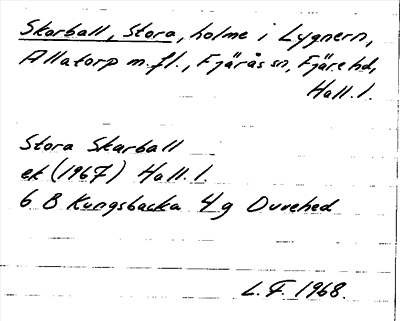 Skarball, Stora, holme i Lygnern,
Allatorp m.fl., Fjärås sn, Fjäre hd,
Hall. l.
Stora Skarball
ek (1967) Hall. l.
6 B Kungsbacka 4g Duvehed
L. F. 1968.